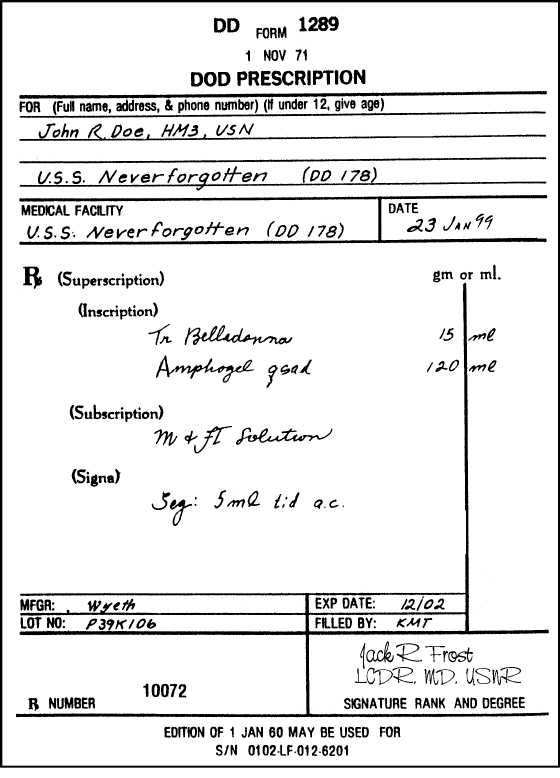 DD FORM 1289
1 NOV 71
DOD PRESCRIPTION
FOR (Full name, address, & phone number) (If under 12, give age)
John R. Doe, HM3, USN
U.S.S. Neverforgotten (DD 178)
MEDICAL FACILITY
U.S.S. Neverforgotten (DD 178)
DATE
23 JAN 99
℞ (Superscription) gm or ml.
(Inscription)
Tr Belladonna 15 ml
Amphogel qsad 120 ml
(Subscription)
M & ft Solution
(Signa)
Sig: 5ml tid a.c.
MFGR: Wyeth EXP DATE: 12/02
LOT NO: P39K106 FILLED BY: KMT
Jack R Frost
LCDR, MD, USNR
10072
℞ NUMBER SIGNATURE RANK AND DEGREE
EDITION OF 1 JAN 60 MAY BE USED FOR
S/N 0102-LF-012-6201